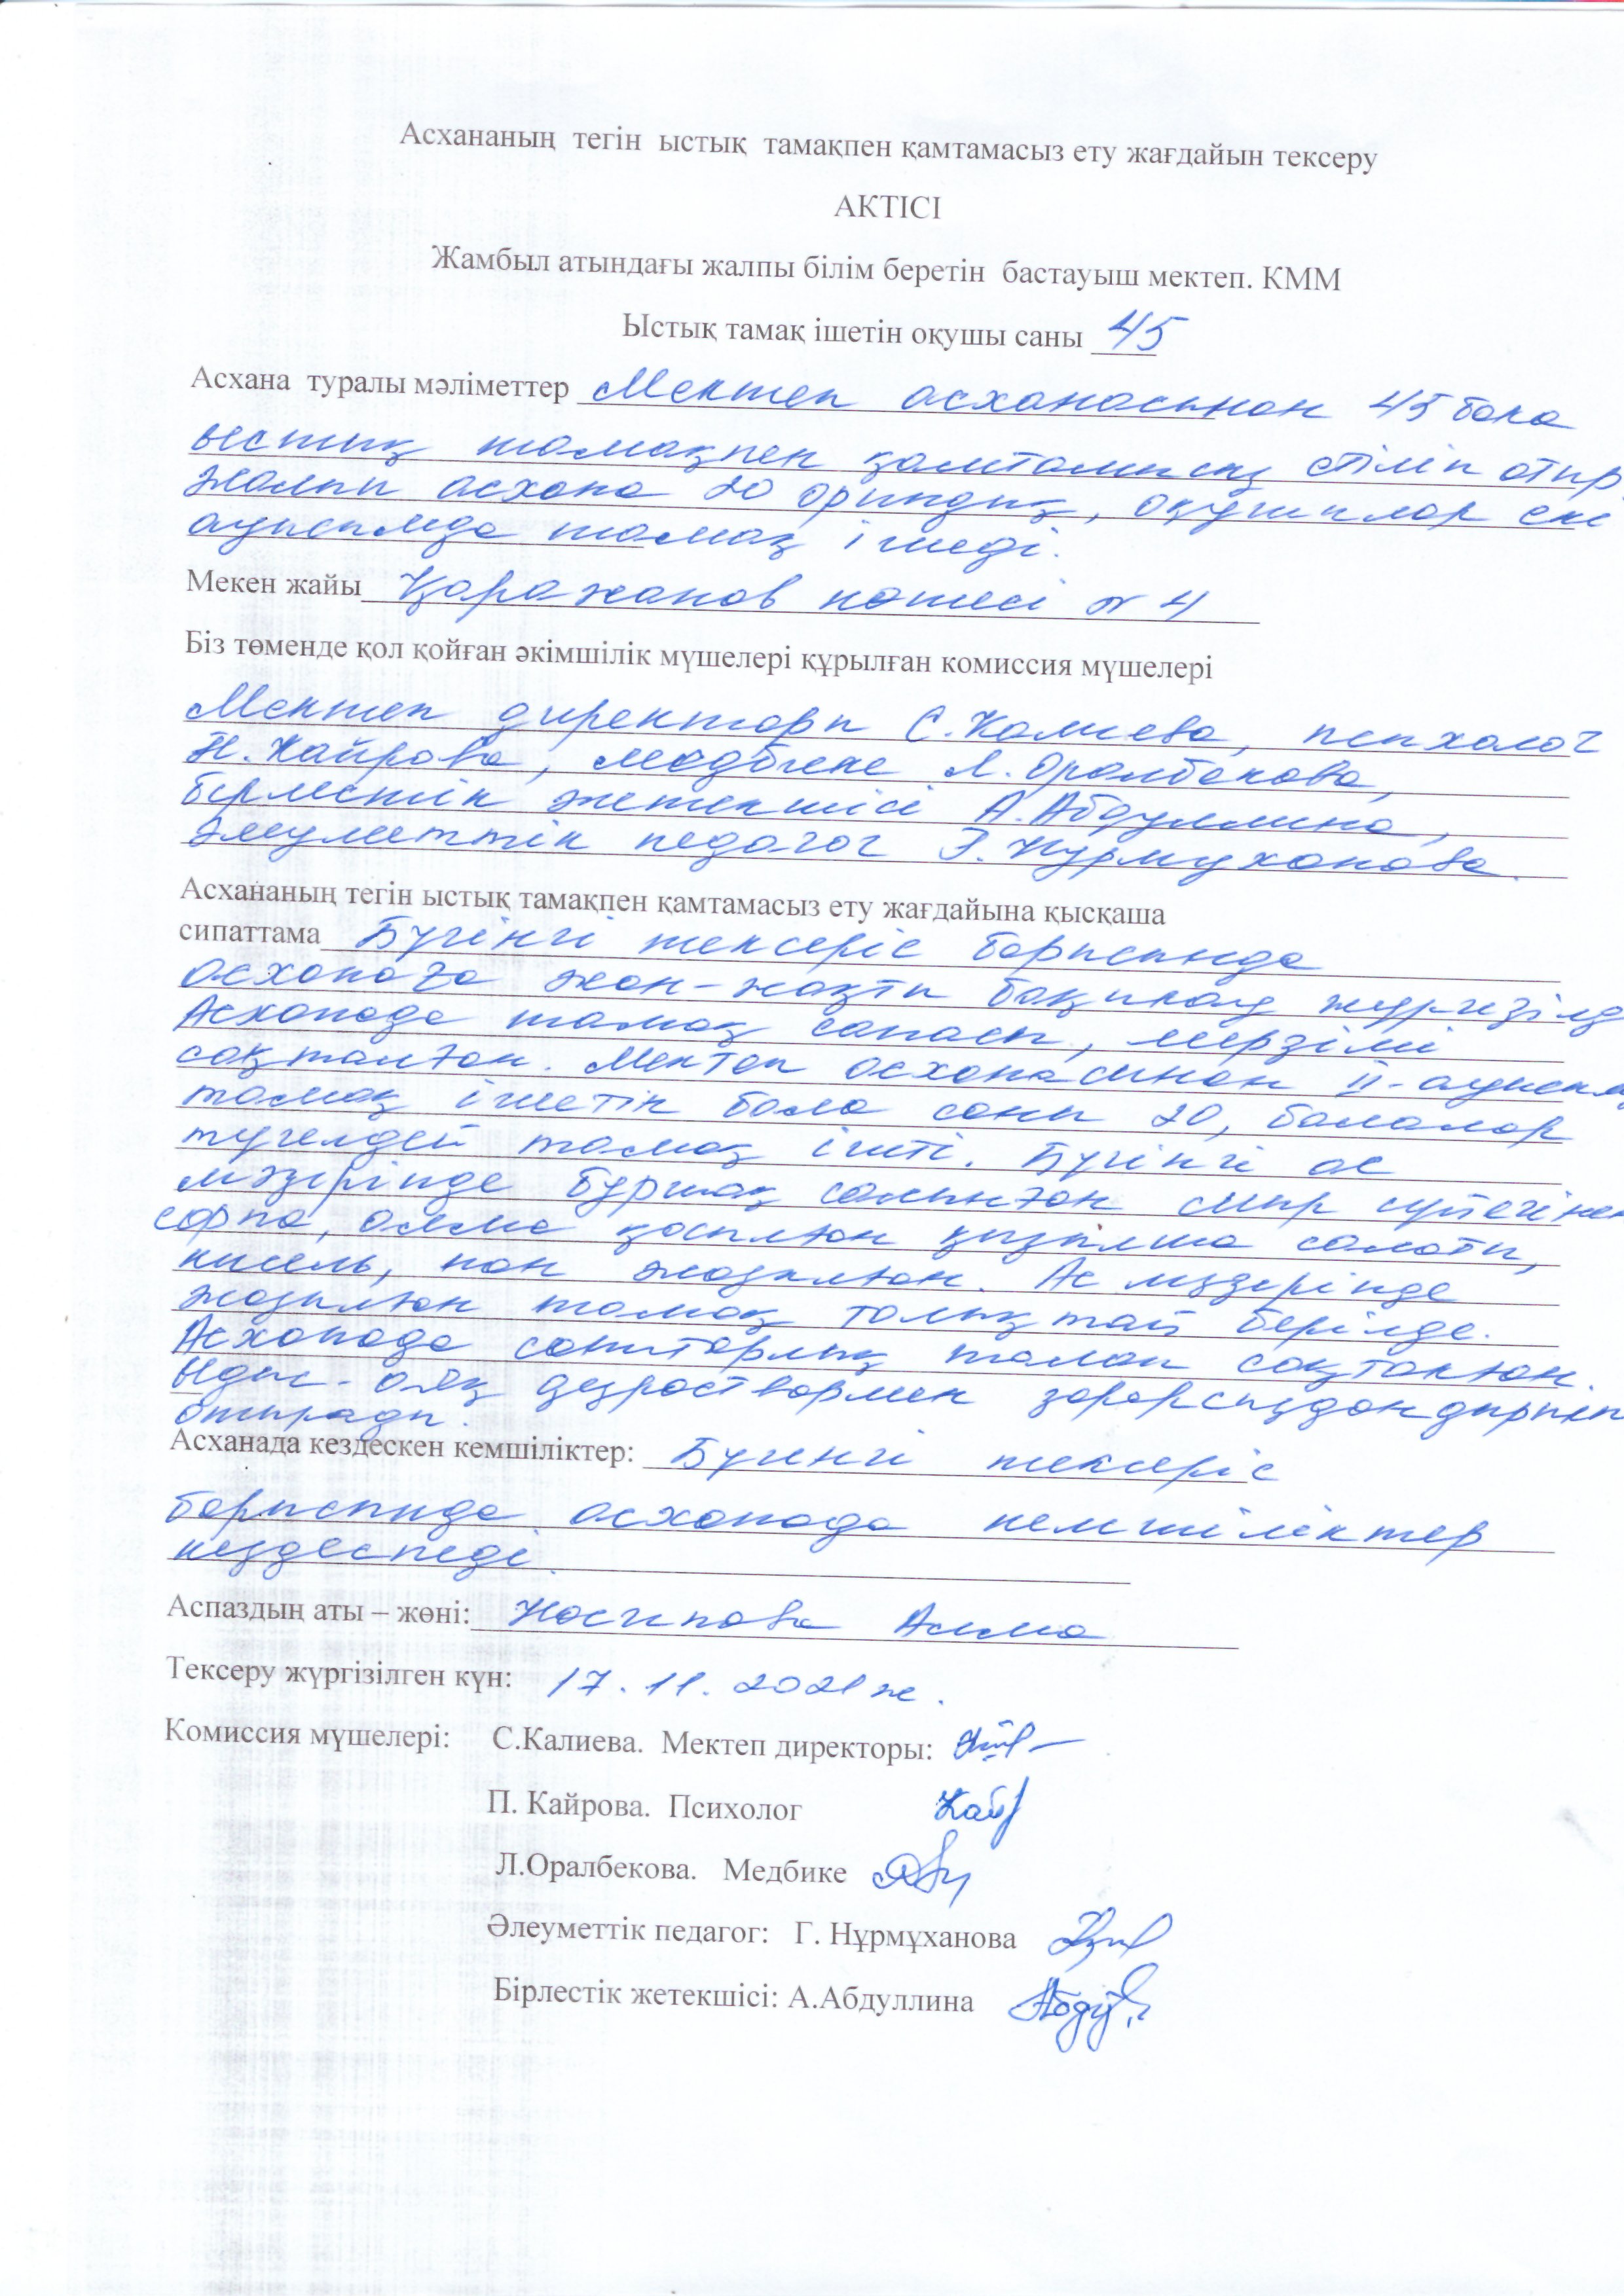 Асхананың тегін ыстық тамақпен қамтамасыз ету жағдайын тексеру
АКТІСІ
Жамбыл атындағы жалпы білім беретін бастауыш мектеп. КММ
Ыстық тамақ ішетін оқушы саны 45
Асхана туралы мәліметтер Мектеп асханасынан 45 бала
ыстық тамақпен қамтамасыз етіліп отыр.
Жалпы асхана 20 орындық, оқушылар екі
ауысымда тамақ ішеді.
Мекен жайы Қаражанов көшесі №4
Біз төменде қол қойған әкімшілік мүшелері құрылған комиссия мүшелері
Мектеп директоры С.Калиева, психолог
П.Кайрова, медбике Л.Оралбекова,
бірлестік жетекшісі А.Абдуллина,
әлеуметтік педагог Г.Нұрмұханова.
Асхананың тегін ыстық тамақпен қамтамасыз ету жағдайына қысқаша
сипаттама Бүгінгі тексеріс барысында
асханаға жан-жақты бақылау жүргізілд
Асханада тамақ сапасы, мерзімі
сақталған. Мектеп асханасынан II-ауысым
тамақ ішетін бала саны 20, балалар
түгелдей тамақ ішті. Бүгінгі ас
мәзірінде бұршақ салынған сиыр сүйегінен
сорпа, алма қосылған қызылша салаты,
кисель, нан жазылған. Ас мәзірінде
жазылған тамақ толықтай берілде.
Асханада санитарлық талап сақталған.
Ыдыс-аяқ дезраствормен зарарсыздандырылып
отырады.
Асханада кездескен кемшіліктер: Бүгінгі тексеріс
барысында асханада кемшіліктер
кездеспеді.
Аспаздың аты – жөні: Носипова Алма
Тексеру жүргізілген күн: 17.11.2021ж.
Комиссия мүшелері: С.Калиева. Мектеп директоры:
П. Кайрова. Психолог Кайр
Л.Оралбекова. Медбике
Әлеуметтік педагог: Г. Нұрмұханова
Бірлестік жетекшісі: А.Абдуллина